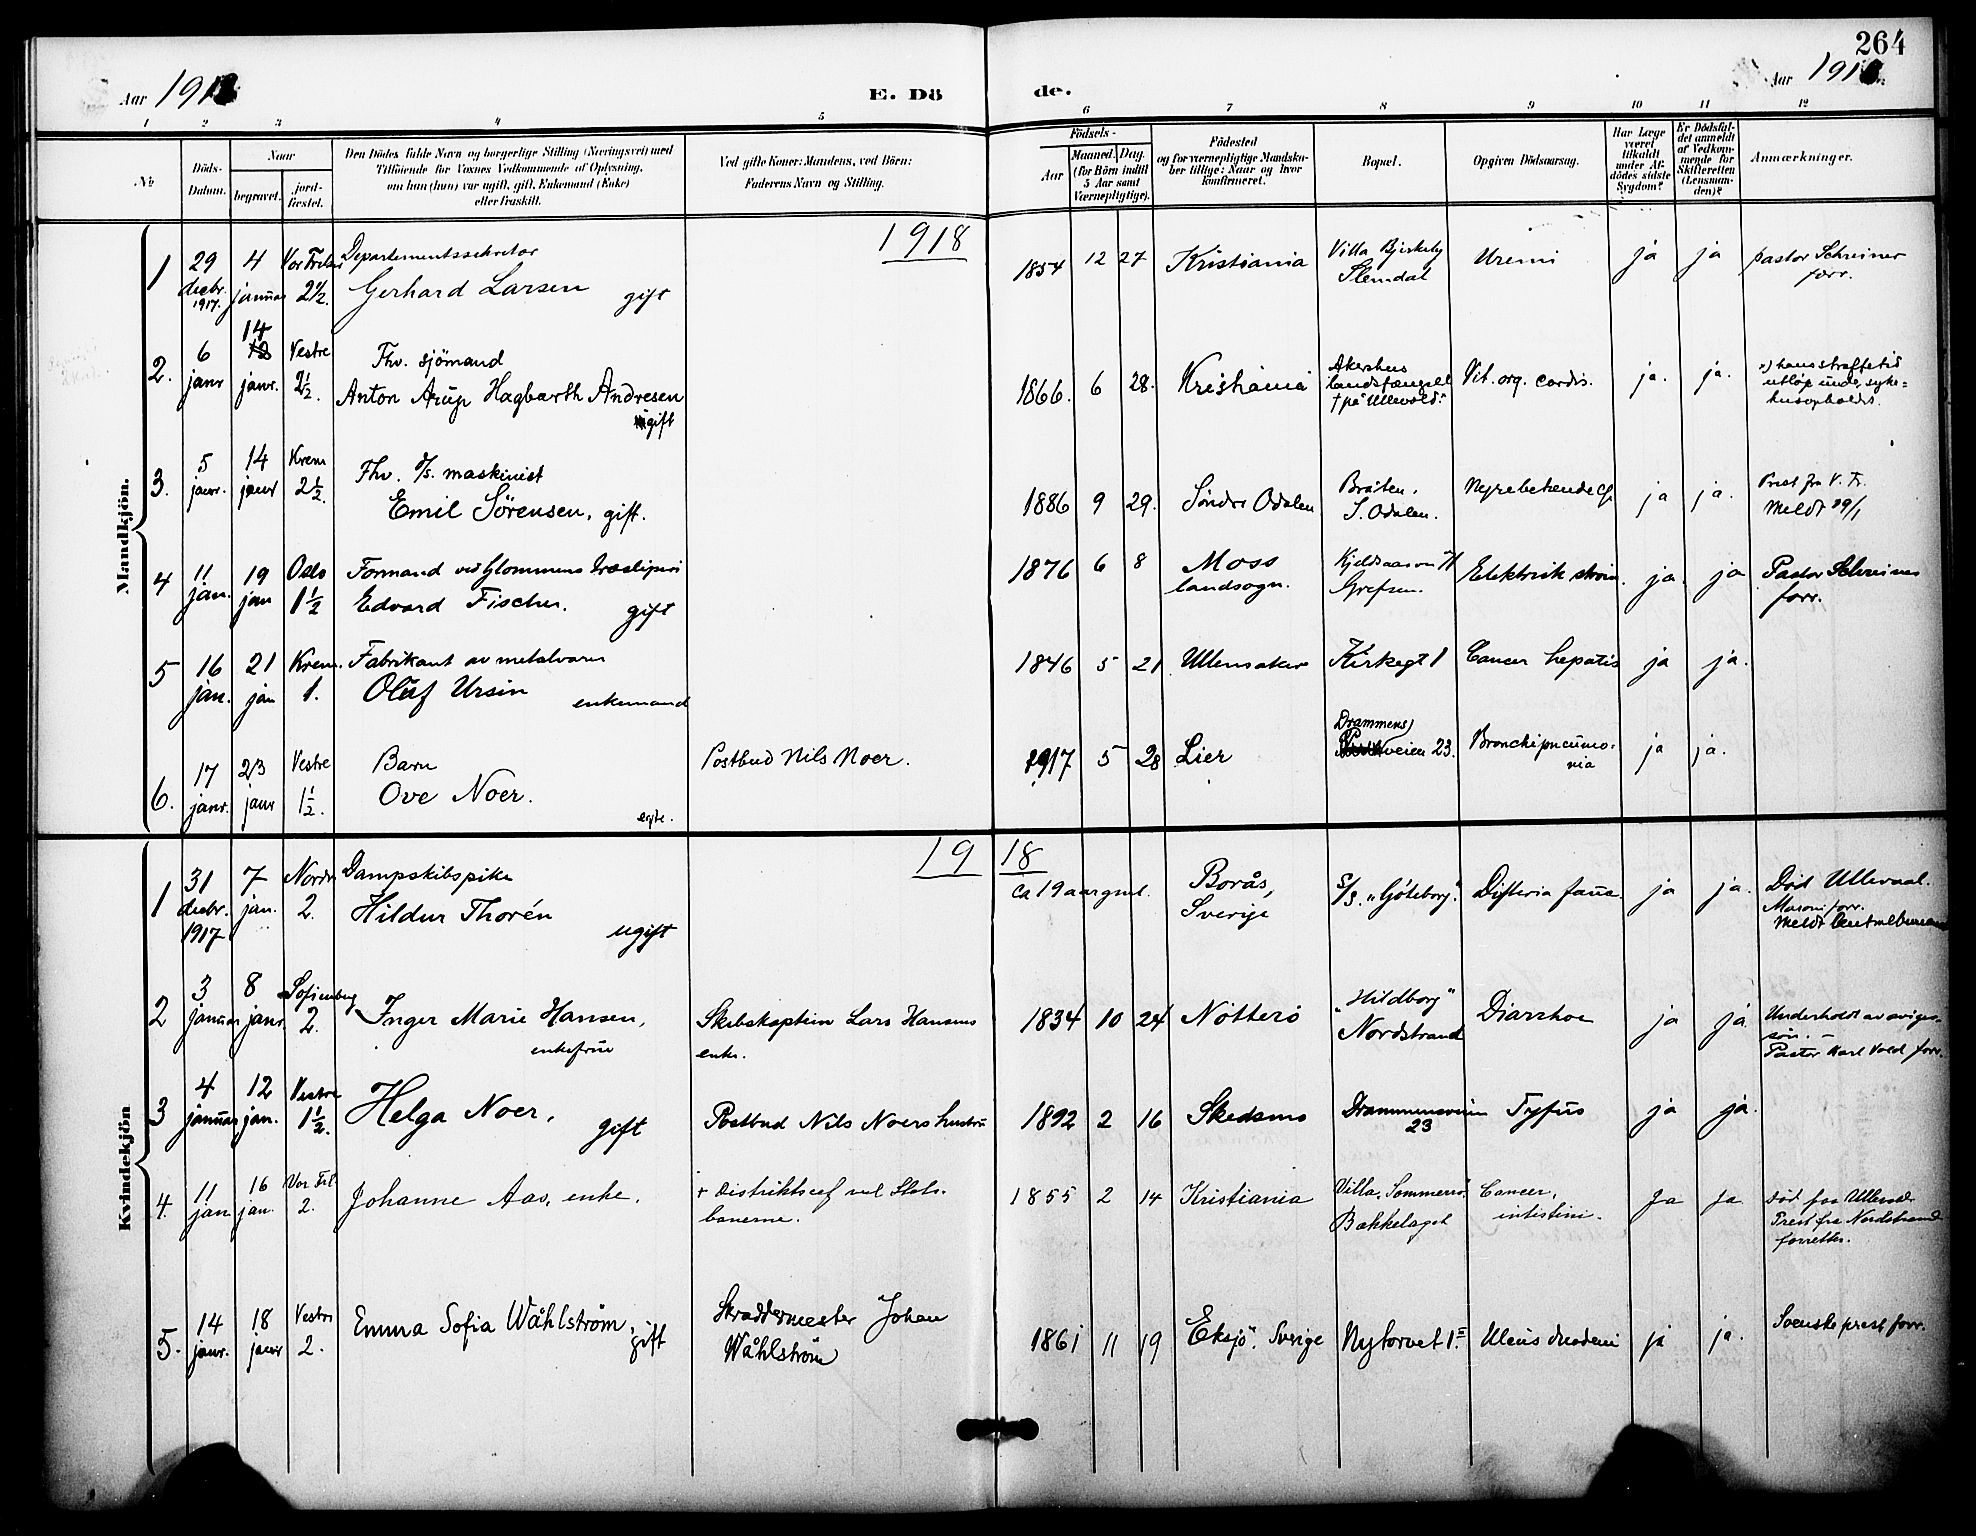 264
Aar 1918
E. Dö
de.
Aar 191
1 2 3 4 5 6 7 8 9 10 11 12
No
Döds-Datum.
Naar
begravet.
jord-fæstet.
Den Dödes fulde Navn og borgerlige Stilling (Næringsvei) med
Tilföiende for Voxnes Vedkommende af Oplysning,
om han (hun) var ugift, gift, Enkemand (Enke)
eller fraskilt.
Ved gifte Koner: Mandens, ved Börn:
Faderens Navn og Stilling.
Födsels-
Aar
Maaned. Dag.
(for Börn indtil
5 Aar samt
Værnepligtige).
Födested
og for værnepligtige Mandska-
ber tillige: Naar og hvor
konfirmeret.
Bopæl.
Opgiven Dödsaarsag.
Har Læge
været
tilkaldt
under Af-
dödes sidste
Sygdom?
Er Dödsfal-
det anmeldt
af Vedkom-
mende for
Skifteretten
(Lensman-
den)?
Anmærkninger.
Mandkjön.
1918
1 29 decbr. 1917. 4 januar Vor Frelser 2 1/2. Departementssekretær
Gerhard Larsen gift
1854 12 27 Kristiania Villa Bjerkely Slemdal Uremi ja ja pastor Schreiner
forr.
2. 6 janr 14 janr. Vestre 2 1/2. Fhv. sjömand
Anton Arup Hagbarth Andresen
gift
1866. 6 28. Kristiania Akershus landsfængsel † på Ullevold. Vit. org. cordis. ja. ja. hans straffetid
utløp under syke=
husopholdet.
3. 5 janr. 14 janr Krem 2 1/2. Fhv. maskinist
Emil Sörensen, gift.
1886 9 29. Söndre Odalen Bråten, S. Odalen. ja ja. Prest fra V. Fr.
Meldt 29/1
4 11 jan. 19 jan Oslo 1 1/2 Formand ved Glommens Træsliperi
Edvard Fischer. gift
1876 6 8 Moss landsogn. Grefsen. Elektrisk ström. ja. ja Pastor Schreiner
forr.
5 16 jan. 21 jan Krem. 1. Fabrikant av metalvarer
Oluf Ursin enkemand
1846 5 21 Ullensaker Kirkegt 1 Cancer hepatis ja ja.
6. 17 janr. 23 janr Vestre 1 1/2. Barn
Ove Noer. egte.
Postbud Nils Noer.
1917 5 28 Lier Drammensveien 23. Bronchipneumo-
nia ja ja.
Kvindekjön
1918
1 31 decbr. 1917 7 jan. Nordre 2. Dampskibspike
Hildur Thorén
ugift
ca 19 aar gml. Borås, Sverige S/S. „Göteborg". Difteria fauc. ja ja. Död Ullevaal.
forr.
Meldt Centralbureau
2 3 januar 8 janr. Sofienberg 2. Inger Marie Hansen,
enkefrue
Skibskaptein Lars Hansens
enke.
1834 10 24 Nötterö „Hildborg" Nordstrand Diarrhoe ja ja Underholdt av
sön.
Pastor Karl Vold forr.
3 4 januar 12 jan. Vestre 1 1/2. Helga Noer, gift
Postbud Nils Noers hustru
1892 2 16 Skedsmo Drammensveien 23 Tyfus ja ja.
4. 11 jan 16 jan. Vor Frel 2. Johanne Aas, enke.
+ Distriktschef ved Stats-
banerne.
1855 2 14 Kristiania Villa „Sommerro" Bækkelaget Cancer, intestini. Ja Ja Död paa Ullevaal
Prest fra Nordstrand
forretter.
5. 14 janr. 18 janr Vestre 2. Emma Sofia Wåhlström, gift
Skræddermester Johan
Wåhlström
1861 11 19 „Eksjö". Sverige Nytorvet 1. Ulcus duodeni ja ja. Svenske prest forr.